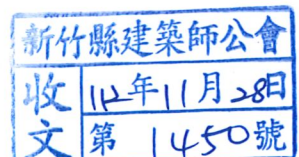 新竹縣建築師公會
收文
112年11月28日
第 1450號